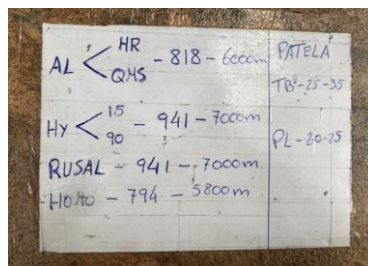 HR
AL < - 818 - 6000m
QMS
15
HY < - 941 - 7000m
90
RUSAL - 941 - 7000m
HOMO - 794 - 5800m
PATELA
TB - 25 - 35
PL - 20-25